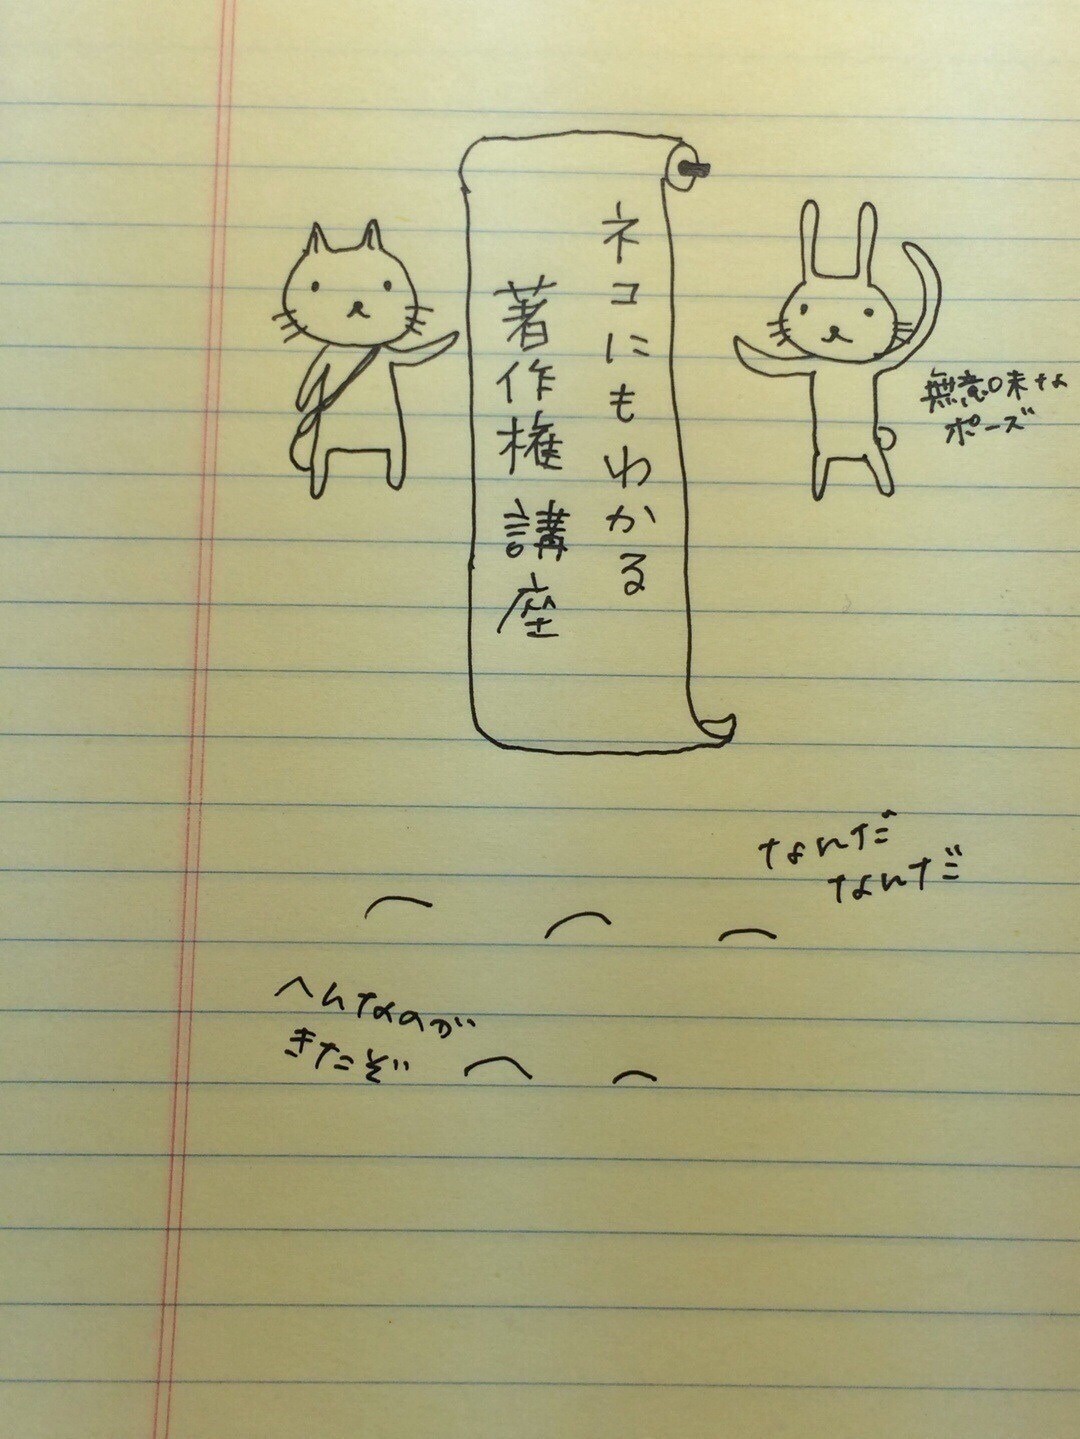 ネコにもわかる
著作権講座
無意味な
ポーズ
なんだ
なんだ
へんなのが
きたぞ